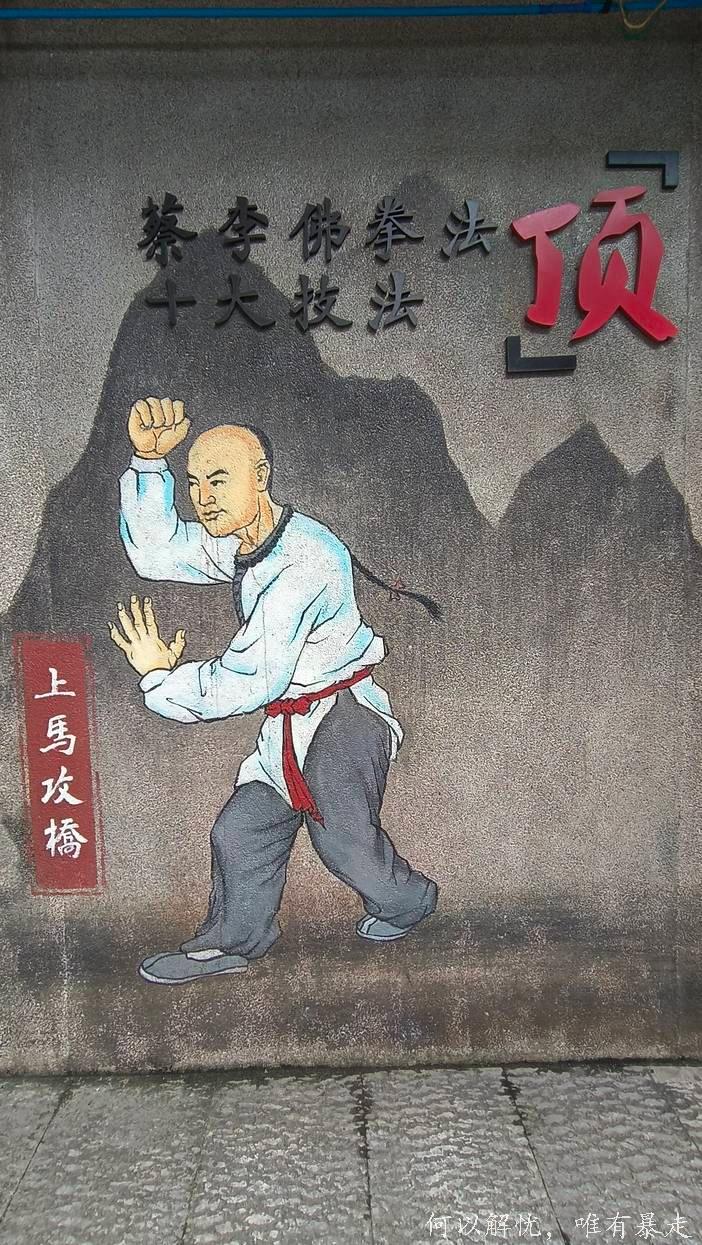 蔡李佛拳法
十大技法
「顶」
上馬攻橋
何以解忧，唯有暴走